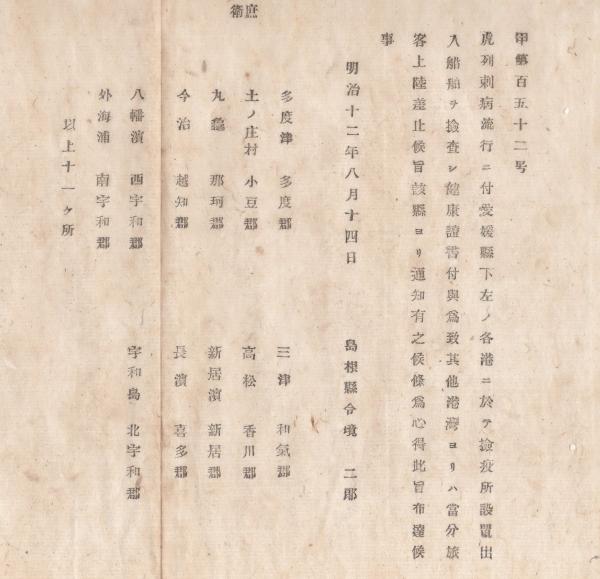 甲第百五十二号
虎列刺病流行ニ付愛媛縣下左ノ各港ニ於テ撿疫所設置出
入船舶ヲ撿査シ健康證書付與爲致其他港灣ヨリハ當分旅
客上陸差止候旨該縣ヨリ通知有之候條爲心得此旨布達候
事
明治十二年八月十四日　島根縣令境　二郎
多度津　多度郡　三津　和氣郡
土ノ庄村　小豆郡　高松　香川郡
九龜　那珂郡　新居濱　新居郡
今治　越知郡　長濱　喜多郡
八幡濱　西宇和郡　宇和島　北宇和郡
外海浦　南宇和郡
以上十一ケ所
庶衛